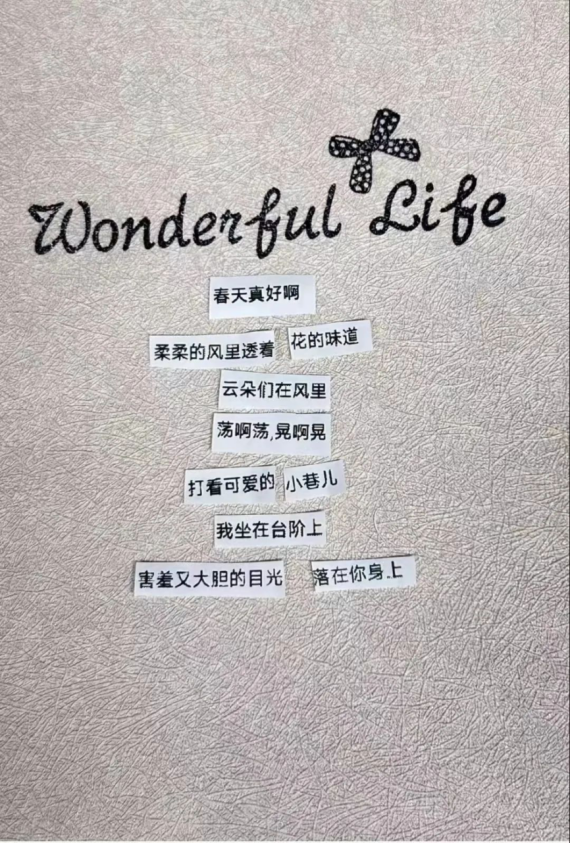 Wonderful Life
春天真好啊
柔柔的风里透着 花的味道
云朵们在风里
荡啊荡,晃啊晃
打看可爱的 小巷儿
我坐在台阶上
害羞又大胆的目光 落在你身上